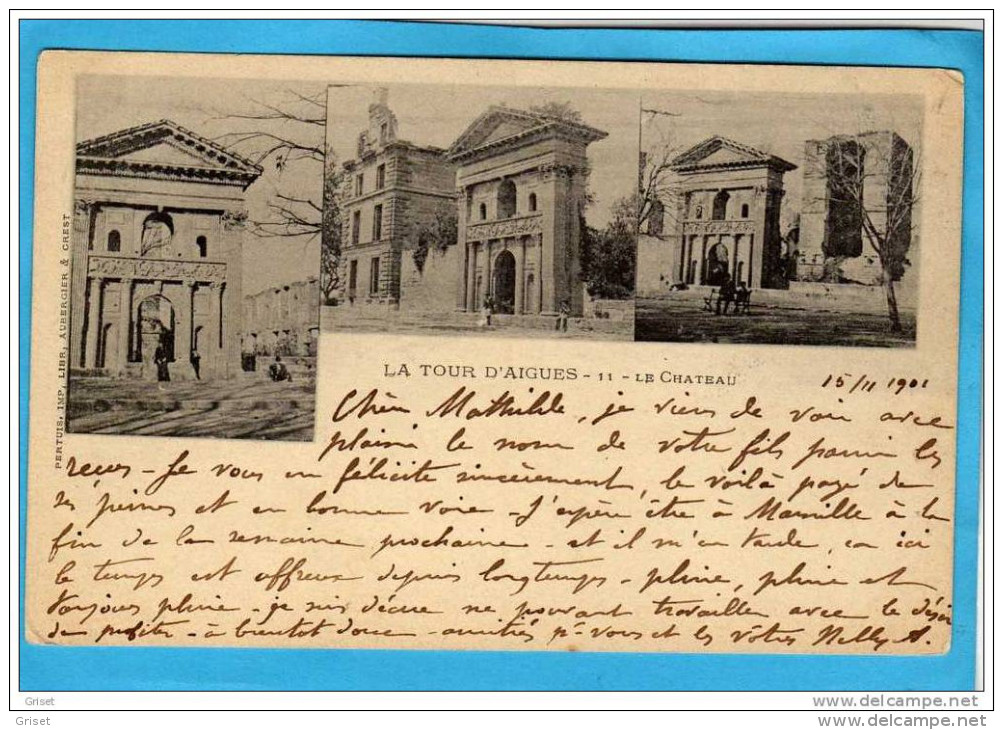 PERTUIS, IMP. LIBR. AUBERGIER & CREST
LA TOUR D'AIGUES - 11 - LE CHATEAU
15/11 1901
Chère Mathilde, je viens de voir avec
plaisir le nom de votre fils parmi les
reçus - Je vous en félicite sincèrement, le voilà payé de
ses peines et en bonne voie - J'espère être à Marseille à la
fin de la semaine prochaine - et il m'en tarde, car ici
le temps est affreux depuis longtemps - pluie, pluie et
toujours pluie - je suis déçue ne pouvant travailler avec le désir
de profiter - à bientôt donc - amitiés pr vous et les vôtres Nelly A.
Griset
15/05/2012
Griset
www.delcampe.net